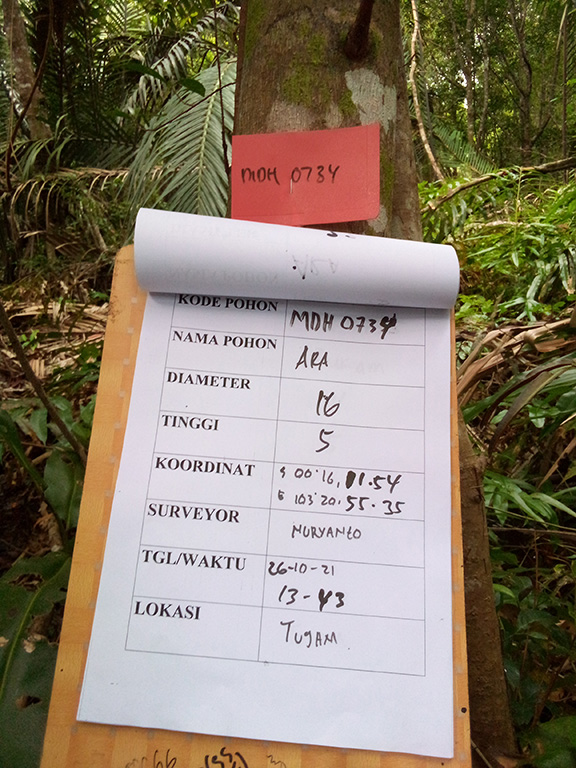 MDH 0734
KODE POHON MDH 0734
NAMA POHON ARA
DIAMETER 16
TINGGI 5
KOORDINAT S 00°16, 11.54
E 103°20, 55.35
SURVEYOR NURYANTO
TGL/WAKTU 26-10-21
13-43
LOKASI TUGAM